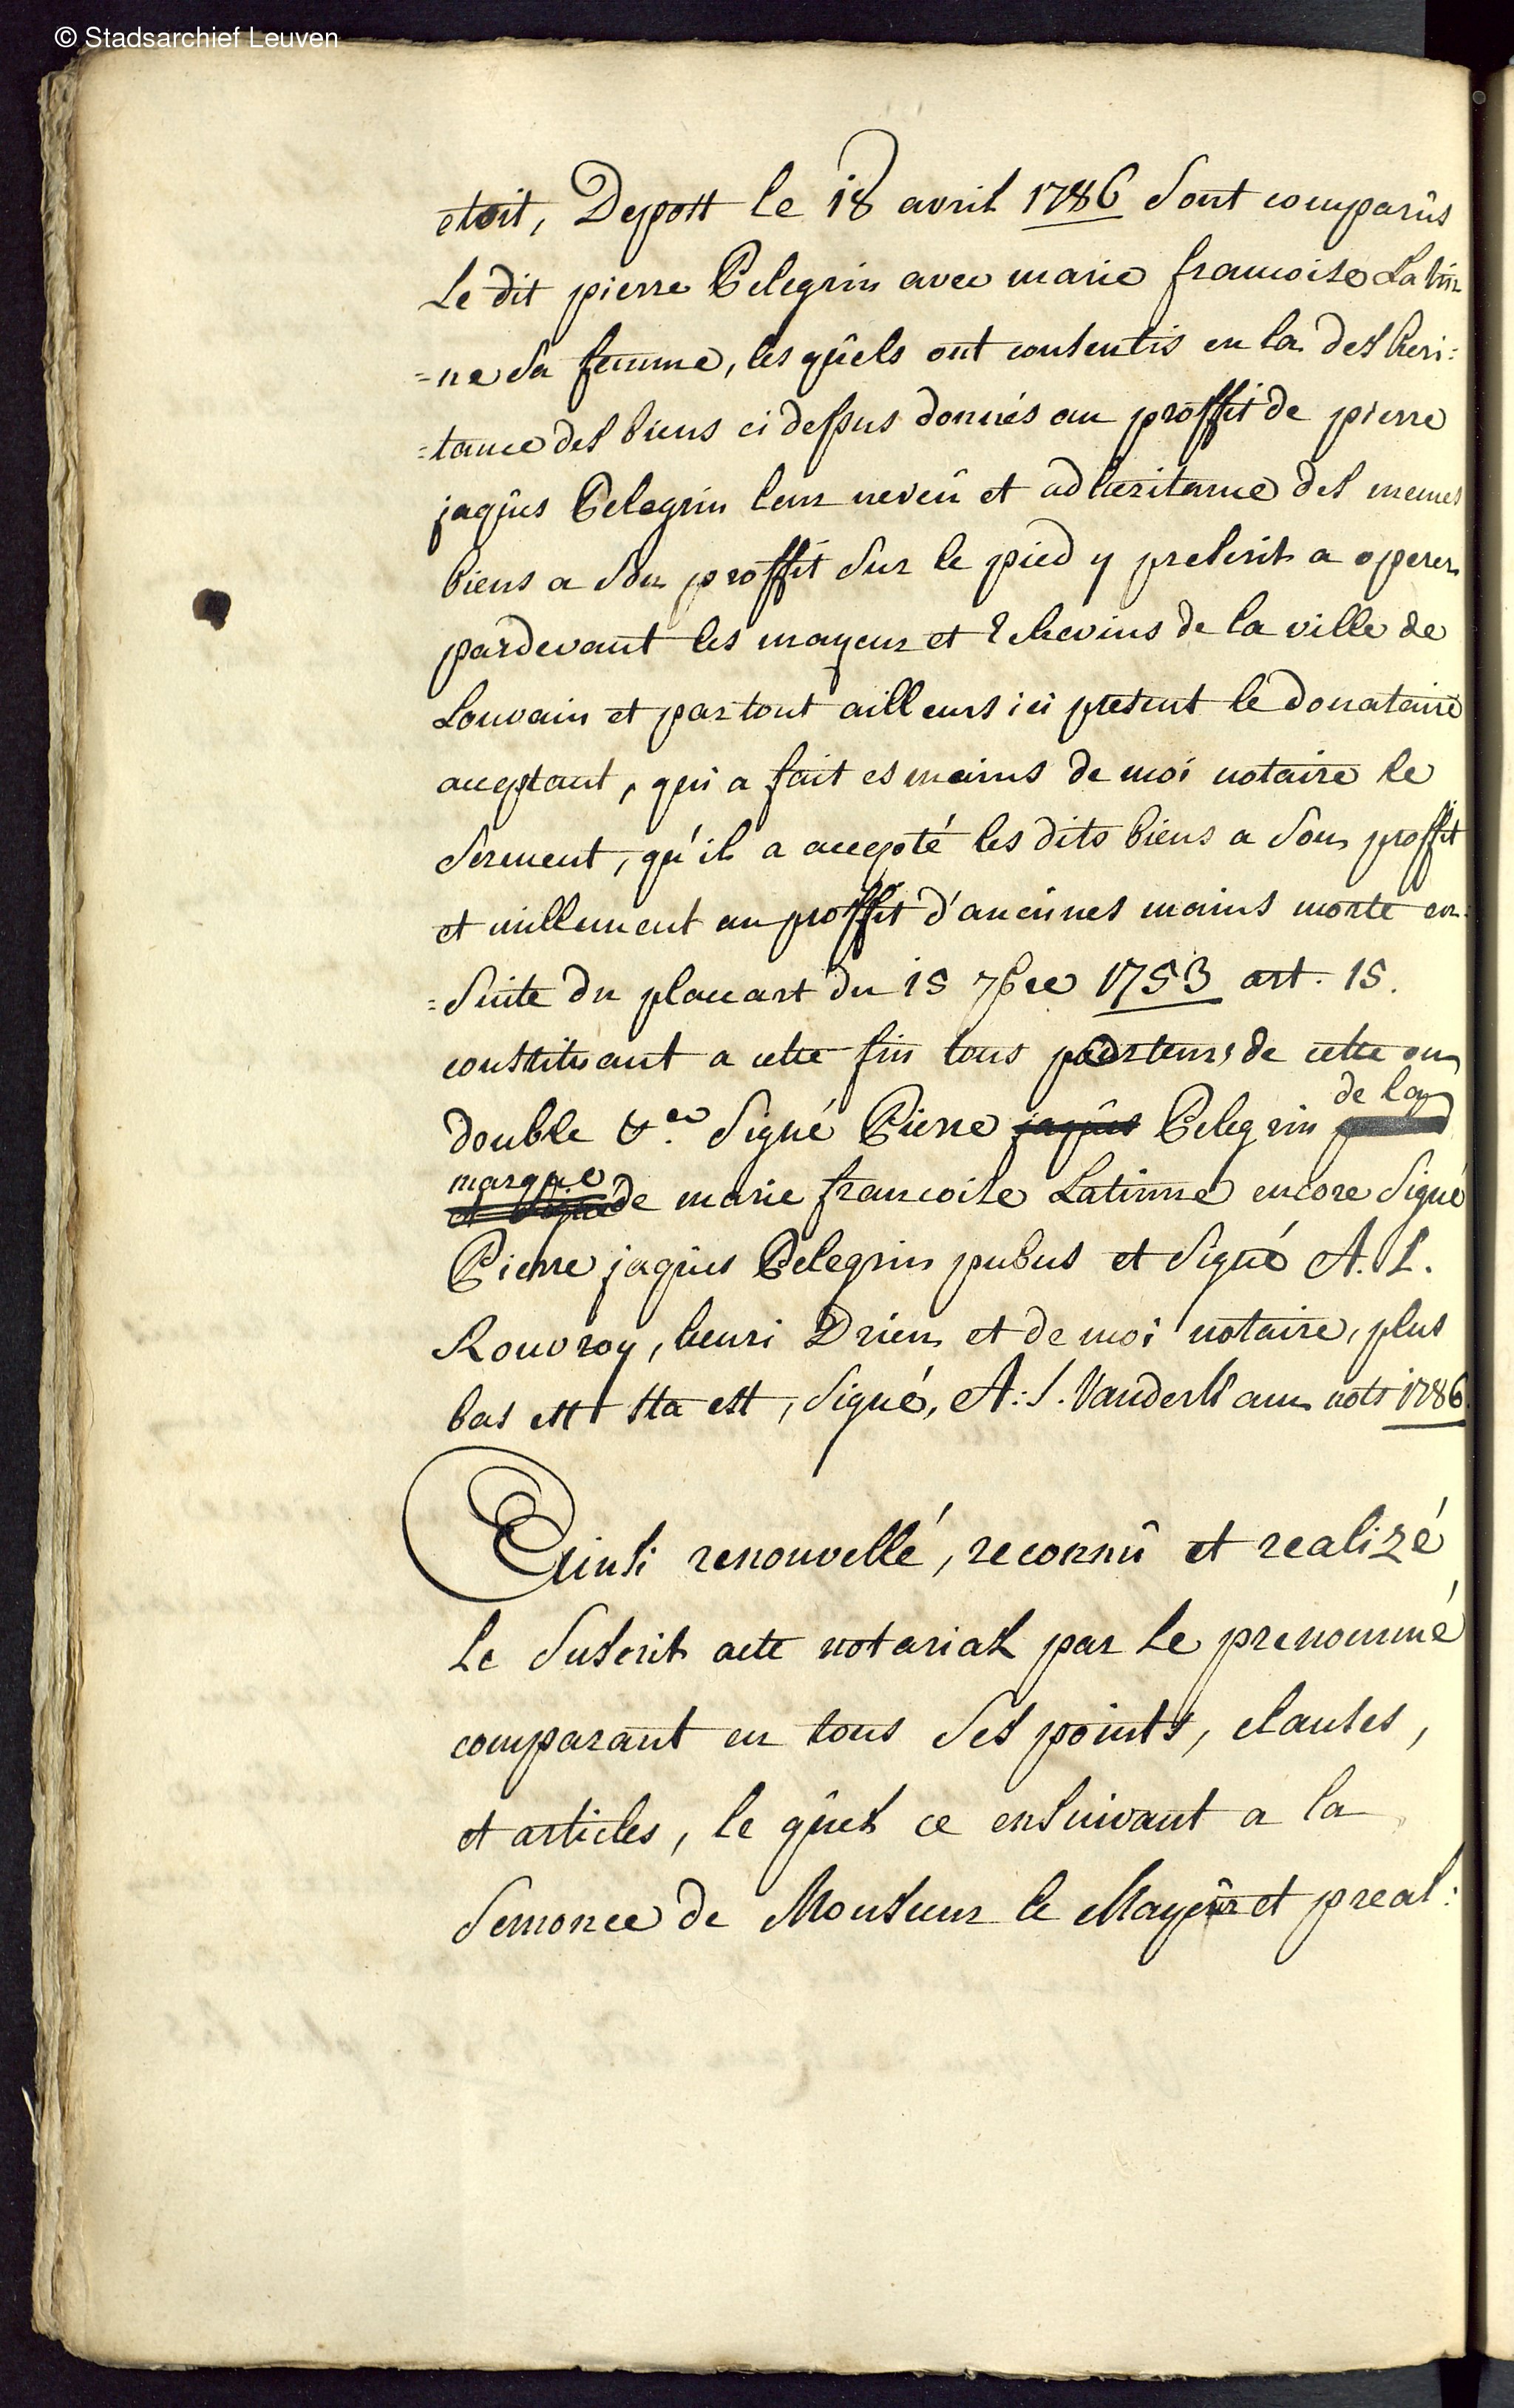 © Stadsarchief Leuven
etoit, Depost le 18 avril 1786 sont comparûs
Le dit pierre Pelegrin avec marie francoise Latin
=ne sa femme, les qûels ont consentis en la desheri:
=tance des biens ci dessus donnés au proffit de pierre
jaqûes Pelegrin leur neveû et adheritance des memes
biens a son proffit sur le pied y prescrit a operer
pardevant les mayeur et Echevins de la ville de
Louvain et par tout ailleurs ici present le donataire
acceptant, qui a fait es mains de moi notaire le
serment, qu'il a accepté les dits biens a son proffit
et nullement au proffit d'aucunes mains morte en:
=suite du placcart du 15 7bre 1753 art. 15.
constituant a cette fin tous porteurs de cette ou
de la
double &.ca signé Pierre jaqûes Pelegrin
marque
et signé de marie francoise Latinne encore signé
Pierre jaqûes Pelegrin pubus et signé A. L.
Rouvroy, henri Drien et de moi notaire, plus
bas est Ita est, signé, A: J. Vanderham nots 1786
Ainsi renouvellé, reconnû et realizé
Le suscrit acte notarial par Le prenommé
comparant en tous ses points, clauses,
et articles, le qûel ce ensuivant a la
semonce de Monsieur le Mayeûr et preal: